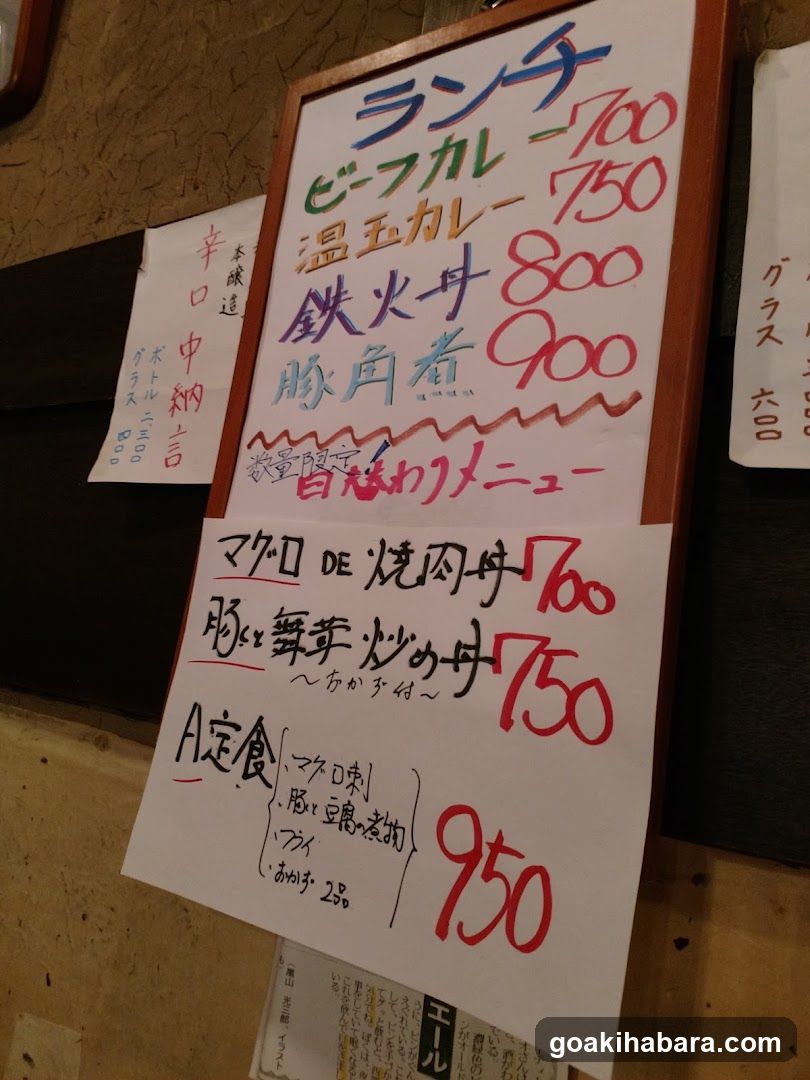 ランチ
ビーフカレー 700
温玉カレー 750
鉄火丼 800
豚角煮 900
数量限定!
日替わりメニュー
マグロ DE 焼肉丼 700
豚と舞茸 炒め丼 750
〜おかず付〜
A定食 950
・マグロ刺
・豚と豆腐の煮物
・フライ
・おかず 2品
本醸造
辛口 中納言
ボトル 二、三〇〇
グラス 四〇〇
グラス 六〇〇
エール
goakihabara.com